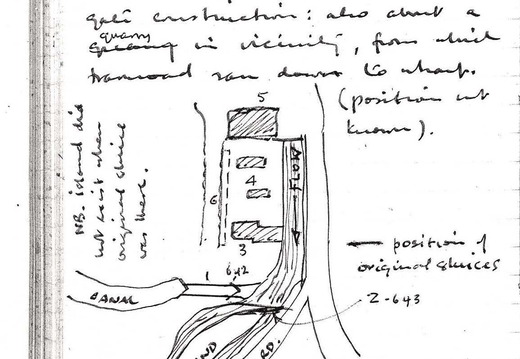 gate construction: also about a
quarry
in vicinity, from which
tramroad ran down to wharf.
(position not
known).
NB. island did
not exist when
original sluice
was there.
5
4
6
3
FLOW
1
642
CANAL
position of
original sluices
2-643
RD.